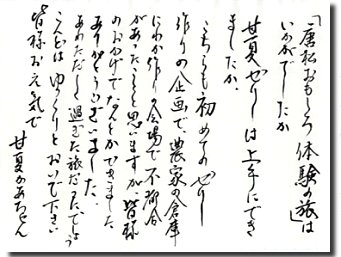 「唐津おもしろ体験の旅」は
いかがでしたか
甘夏ゼリーは上手にでき
ましたか。
こちらも初めてのゼリー
作りの企画で、農家の倉庫
にわか作りの会場で不都合
があったことと思いますが、皆様
のおかげでなんとかできました
ありがとうございました。
あわただしく過ぎた旅だったでしょう
こんどはゆっくりとおいで下さい
皆様お元気で
甘夏かあちゃん